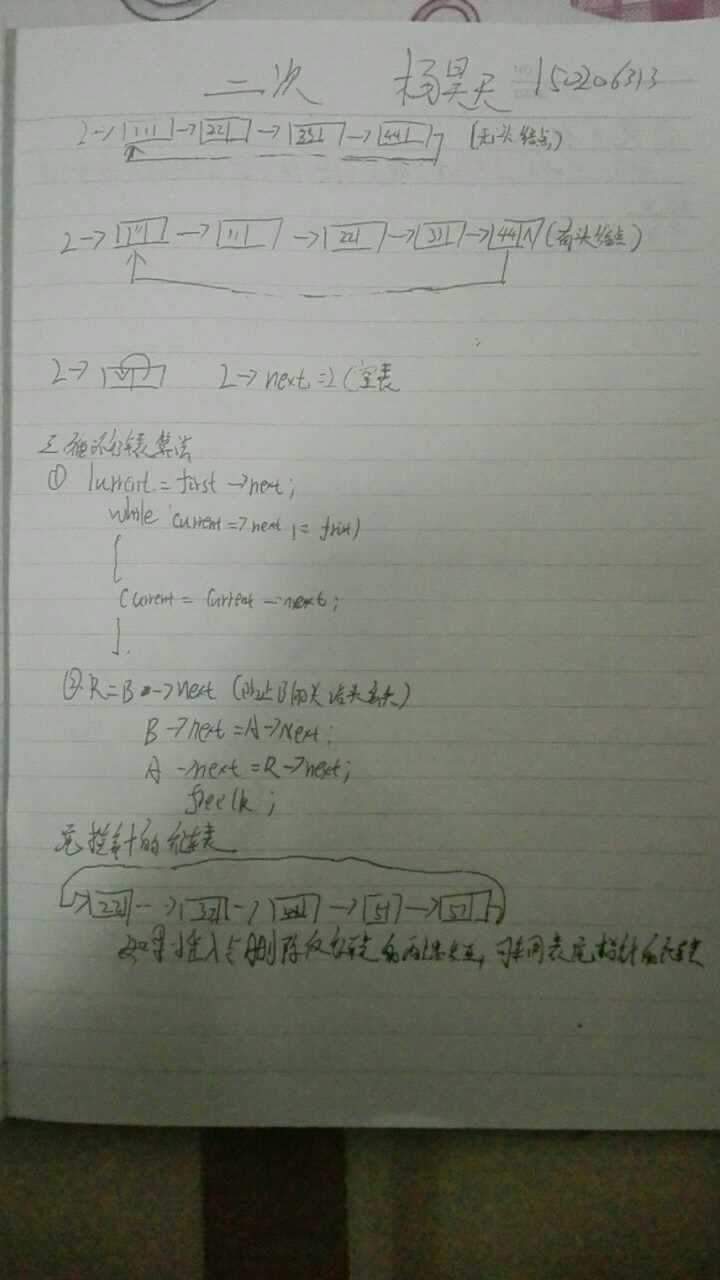 二次 杨昊天 150206313
L→ 111 → 221 → 331 → 441 (无头结点)
L→ → 111 → 221 → 331 → 441 (有头结点)
L→ L→next=L(空表
三循环链表算法
① Current=first→next;
while current=>next != first)
{
Current = Current→next;
}.
②R=B→next
B→next=A→Next;
A→next=R→next;
free(R;
尾指针的链表
221 → 321 → → 51 → 51
如果插入与删除仅在链表的两端发生,可采用表尾指针的链表